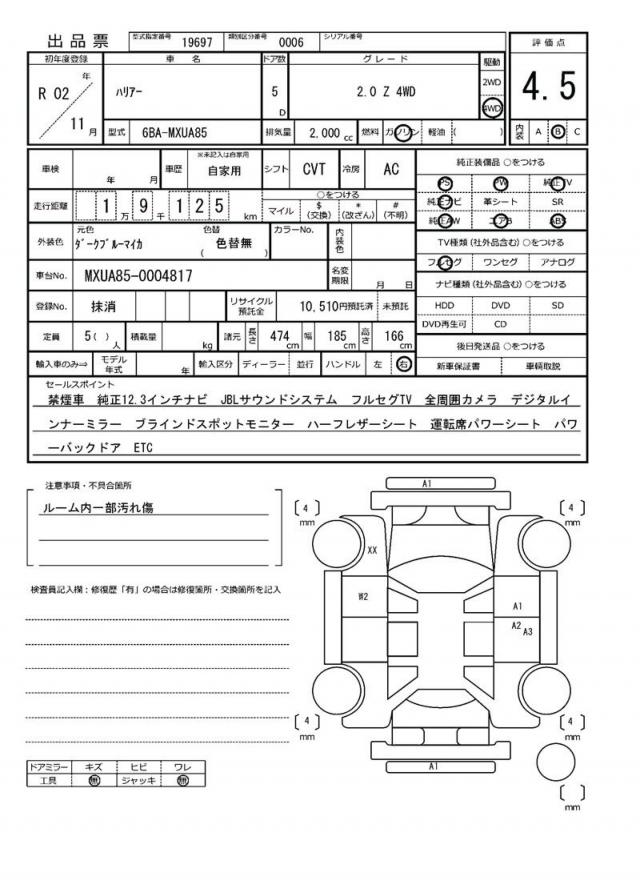 出品票 型式指定番号 19697 類別区分番号 0006 シリアル番号
評価点
4.5
初年度登録 車名 ドア数 グレード 駆動
R 02 年 ハリアー 5 D 2.0 Z 4WD 2WD
4WD
11 月 型式 6BA-MXUA85 排気量 2,000 cc 燃料 ガソリン 軽油 ( ) 内装 A B C
車検 年 月 車歴 ※未記入は自家用 自家用 シフト CVT 冷房 AC
走行距離 1 万 9 千 1 2 5 km ○をつける
マイル $ (交換) * (改ざん) # (不明)
外装色 元色 ダークブルーマイカ 色替 ( 色替無 ) カラーNo. 内装色
車台No. MXUA85-0004817 名変期限 月 日
登録No. 抹消 リサイクル預託金 10,510円預託済 未預託
定員 5( ) 人 積載量 kg 諸元 長さ 474 cm 幅 185 cm 高さ 166 cm
輸入車のみ⇒ モデル年式 年 輸入区分 ディーラー 並行 ハンドル 左 右
純正装備品 ○をつける
PS PW 純正TV
純正ナビ 革シート SR
純正AW エアB ABS
TV種類(社外品含む)○をつける
フルセグ ワンセグ アナログ
ナビ種類(社外品含む)○をつける
HDD DVD SD
DVD再生可 CD
後日発送品 ○をつける
新車保証書 車輌取説
セールスポイント
禁煙車 純正12.3インチナビ JBLサウンドシステム フルセグTV 全周囲カメラ デジタルイ
ンナーミラー ブラインドスポットモニター ハーフレザーシート 運転席パワーシート パワ
ーバックドア ETC
注意事項・不具合箇所
ルーム内一部汚れ傷
検査員記入欄：修復歴「有」の場合は修復箇所・交換箇所を記入
ドアミラー キズ ヒビ ワレ
工具 無 ジャッキ 無
A1
[ 4 ] mm
[ 4 ] mm
XX
W2
A1
A2
A3
[ 4 ] mm
[ 4 ] mm
A1
[ ] mm